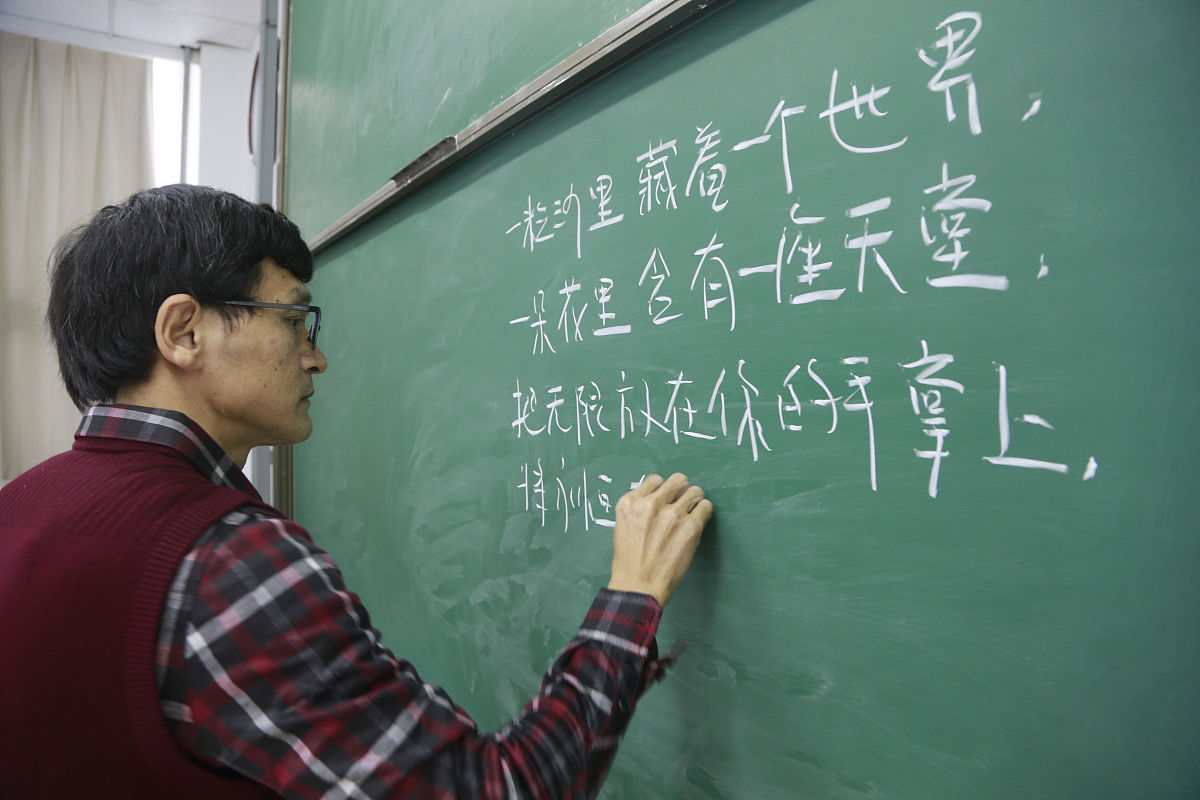 一粒沙里藏着一个世界,
一朵花里含有一座天堂,
把无限放在你的手掌上,
将永恒